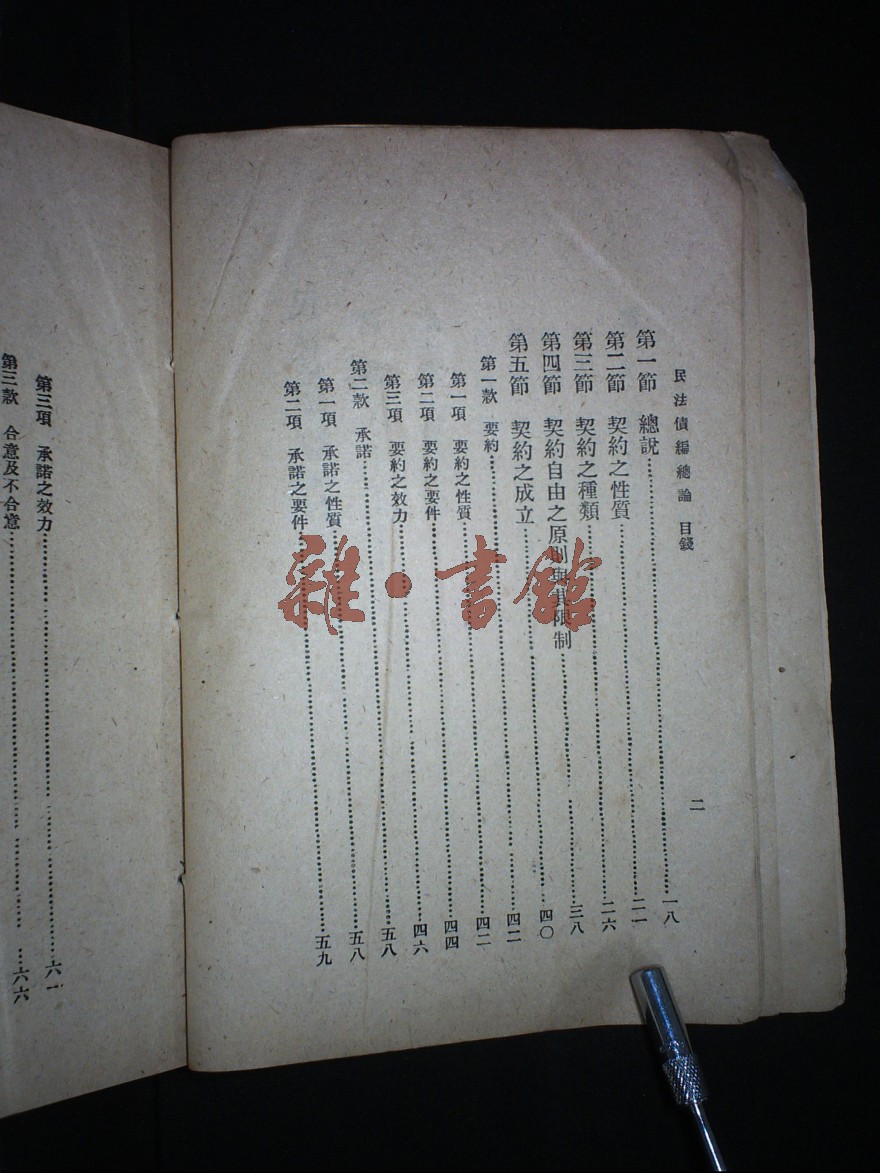 民法債編總論 目錄
二
第一節 總說……一八
第二節 契約之性質……二一
第三節 契約之種類……二六
第四節 契約自由之原則與其限制……三八
第五節 契約之成立……四〇
第一款 要約……四二
第一項 要約之性質……四二
第二項 要約之要件……四四
第三項 要約之效力……四六
第二款 承諾……五八
第一項 承諾之性質……五八
第二項 承諾之要件……五九
第三項 承諾之效力……六一
第三款 合意及不合意……六六
雜·書館